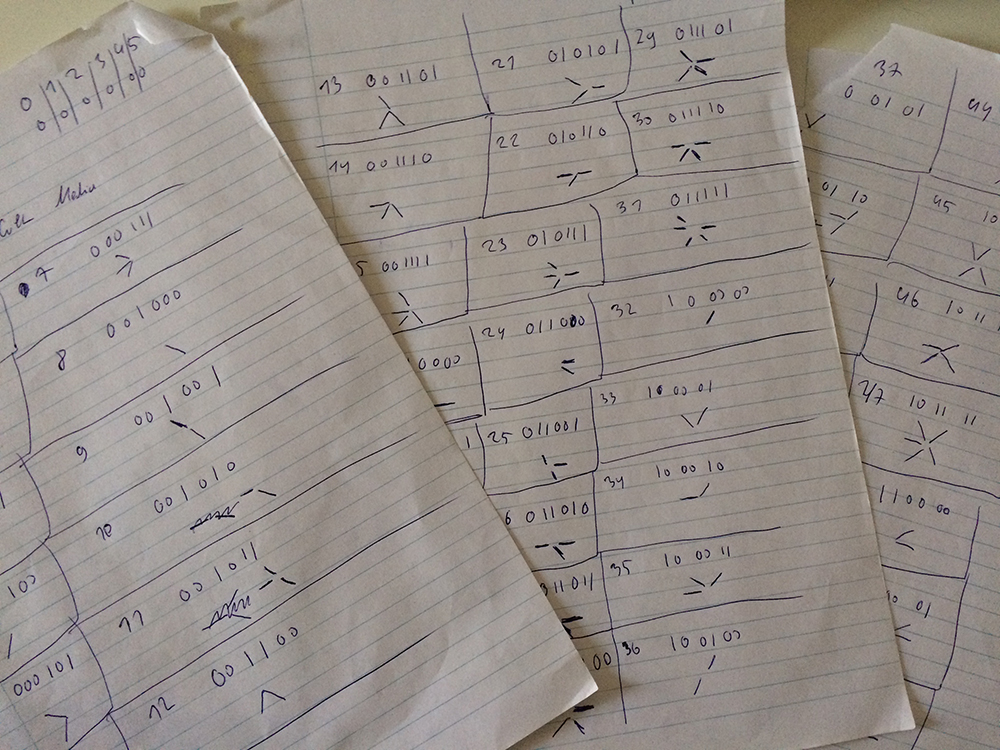 0 1 2 3 4 5
0 0 0 0 0 0
7 000111
8 001000
9 001001
10 001010
11 001011
12 001100
100
000101
13 001101
14 001110
5 001111
0000
1
21 010101
22 010110
23 010111
24 011000
25 011001
6 011010
011011
00
29 011101
30 011110
31 011111
32 100000
33 100001
34 100010
35 100011
36 100100
37
0 01 01
01 10
44
45 10
46 10 11
47 10 11 11
110000
0 01